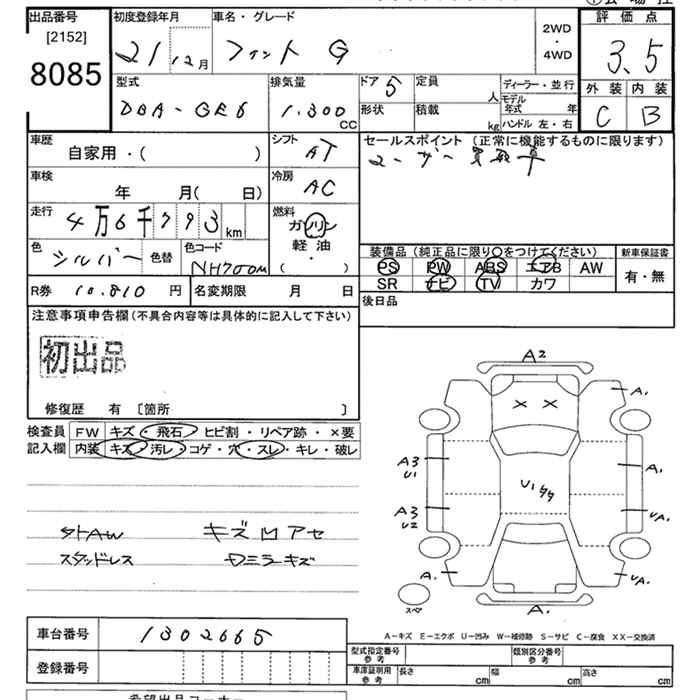 出品番号 初度登録年月 車名・グレード 評価点
[2152]
8085
21 12月 フィット G 2WD・4WD 3.5
型式 排気量 ドア 5 定員 人 ディーラー・並行 外装 内装
DBA-GE6 1.300 CC 形状 積載 kg モデル年式 年 ハンドル 左・右 C B
車歴 シフト セールスポイント (正常に機能するものに限ります)
自家用・( ) AT ユーザー買取車
車検 冷房
年 月( 日) AC
走行 燃料
4万6千793km ガソリン
色 シルバー 色替 色コード NH700M 軽油 ( ・ )
装備品 (純正品に限り○をつけてください) 新車保証書
PS PW ABS エアB AW 有・無
SR ナビ TV カワ
R券 10.810 円 名変期限 月 日 後日品
注意事項申告欄(不具合内容等は具体的に記入して下さい)
初出品
修復歴 有 〔箇所 〕
検査員 FW キズ・飛石・ヒビ割・リペア跡・×要
記入欄 内装 キズ・汚レ・コゲ・穴・スレ・キレ・破レ
A2
A. A.
A3 U1 A.
U1
A3 U2 UA.
A. UA.
スペ A.
キズ凹アセ
スタッドレス Dミラーキズ
A-キズ E-エクボ U-凹み W-補修跡 S-サビ C-腐食 XX-交換済
車台番号 1302665
登録番号
型式指定番号 参考 類別区分番号 参考
車庫証明用 参考 長さ cm 幅 cm 高さ cm
希望出品コーナー